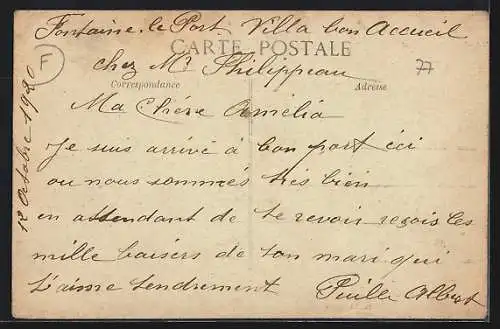 Fontaine le Port Villa bon Accueil
CARTE POSTALE
chez Mr Philippeau
Correspondance
Adresse
Ma Chère Amélia
Je suis arrivé à bon port ici
ou nous sommes très bien
en attendant de te revoir reçois les
mille baisers de ton mari qui
t'aime tendrement
Albert
12 Octobre 1920
F
77